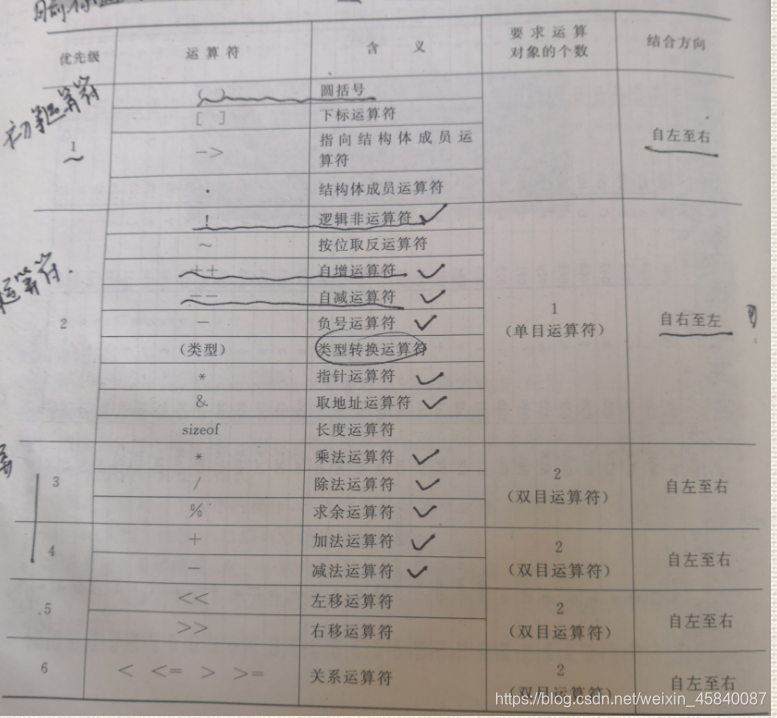 优先级 运算符 含 义 要求运算对象的个数 结合方向
1 ( ) 圆括号 自左至右
[ ] 下标运算符
-> 指向结构体成员运算符
. 结构体成员运算符
2 ! 逻辑非运算符 1 (单目运算符) 自右至左
~ 按位取反运算符
++ 自增运算符
-- 自减运算符
- 负号运算符
(类型) 类型转换运算符
* 指针运算符
& 取地址运算符
sizeof 长度运算符
3 * 乘法运算符 2 (双目运算符) 自左至右
/ 除法运算符
% 求余运算符
4 + 加法运算符 2 (双目运算符) 自左至右
- 减法运算符
5 << 左移运算符 2 (双目运算符) 自左至右
>> 右移运算符
6 < <= > >= 关系运算符 2 (双目运算符) 自左至右
运算符.
https://blog.csdn.net/weixin_45840087